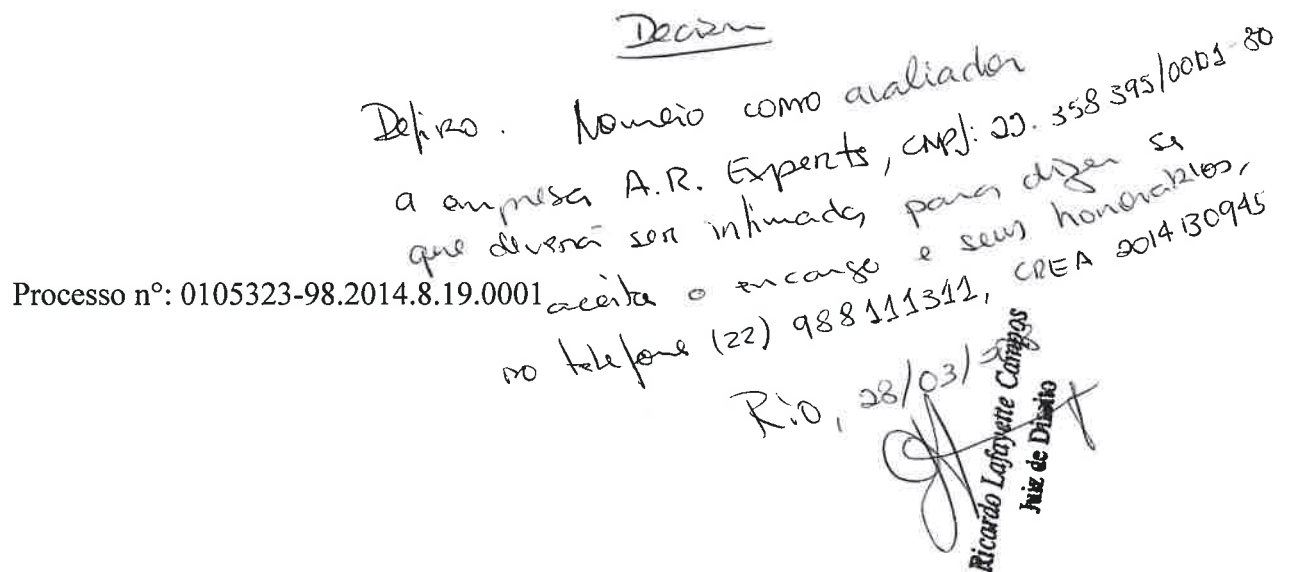 Decisão
Defiro. Nomeio como avaliador
a empresa A.R. Experts, CNPJ: 22.358395/0001-80
que deverá ser intimada, para dizer se
aceita o encargo e seus honorários,
no telefone (22) 988111311, CREA 2014130945
Rio, 28/03/
Processo nº: 0105323-98.2014.8.19.0001
Ricardo Lafayette Campos
Juiz de Direito